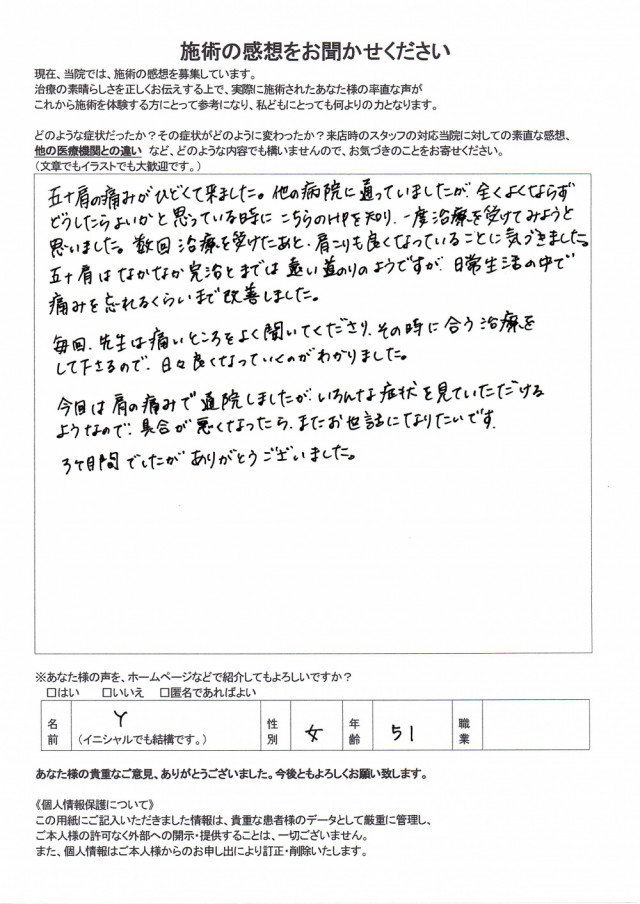 施術の感想をお聞かせください
現在、当院では、施術の感想を募集しています。
治療の素晴らしさを正しくお伝えする上で、実際に施術されたあなた様の率直な声が
これから施術を体験する方にとって参考になり、私どもにとっても何よりの力となります。
どのような症状だったか？その症状がどのように変わったか？来店時のスタッフの対応当院に対しての素直な感想、
他の医療機関との違い など、どのような内容でも構いませんので、お気づきのことをお寄せください。
（文章でもイラストでも大歓迎です。）
五十肩の痛みがひどくて来ました。他の病院に通っていましたが、全くよくならず
どうしたらよいかと思っている時に こちらのHPを知り、一度治療を受けてみようと
思いました。数回治療を受けたあと、肩こりも良くなっていることに気づきました。
五十肩はなかなか完治とまでは遠い道のりのようですが、日常生活の中で
痛みを忘れるくらいまで改善しました。
毎回、先生は痛いところをよく聞いてくださり、その時に合う治療を
して下さるので、日々良くなっていくのがわかりました。
今回は肩の痛みで通院しましたが、いろんな症状を見ていただける
ようなので、具合が悪くなったら、またお世話になりたいです。
3ヶ月間でしたがありがとうございました。
※あなた様の声を、ホームページなどで紹介してもよろしいですか？
□はい □いいえ □匿名であればよい
名前 Y （イニシャルでも結構です。） 性別 女 年齢 51 職業
あなた様の貴重なご意見、ありがとうございました。今後ともよろしくお願い致します。
《個人情報保護について》
この用紙にご記入いただきました情報は、貴重な患者様のデータとして厳重に管理し、
ご本人様の許可なく外部への開示・提供することは、一切ございません。
また、個人情報はご本人様からのお申し出により訂正・削除いたします。